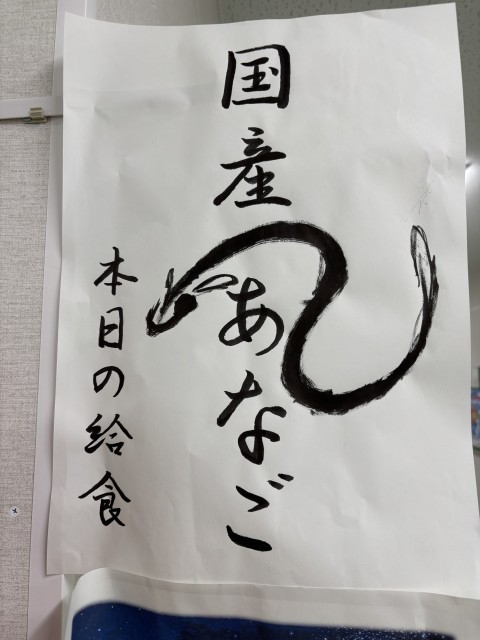 国産
あなご
本日の給食